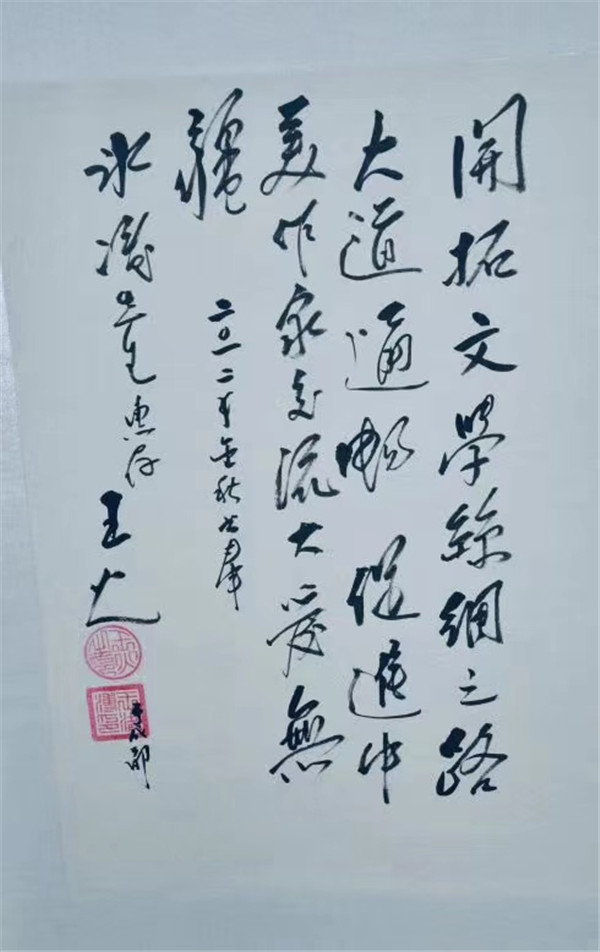 開拓文學絲綢之路
大道通暢 促進中
美作家交流大愛無
疆
二〇一二年金秋
冰凌先生惠存
王火
于成都